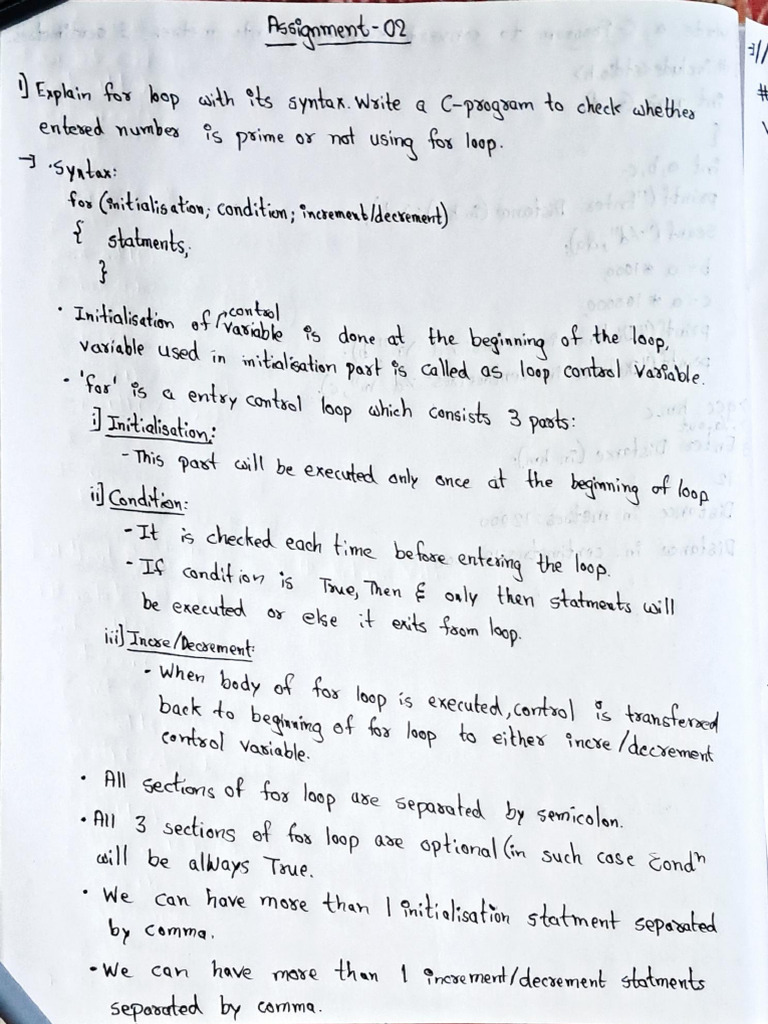 Assignment-02
i] Explain for loop with its syntax. Write a C-program to check whether
entered number is prime or not using for loop.
→ • Syntax:
for (initialisation; condition; increment/decrement)
{ statments;
}
• Initialisation of control variable is done at the beginning of the loop,
variable used in initialisation part is called as loop control variable.
• 'for' is a entry control loop which consists 3 parts:
i] Initialisation:
- This part will be executed only once at the beginning of loop
ii] Condition:
- It is checked each time before entering the loop.
- If condition is True, Then & only then statments will
be executed or else it exits from loop.
iii] Incre/Decrement:
- When body of for loop is executed, control is transferred
back to beginning of for loop to either incre/decrement
control variable.
• All sections of for loop are separated by semicolon.
• All 3 sections of for loop are optional (in such case condⁿ
will be always True.
• We can have more than 1 initialisation statment separated
by comma.
• We can have more than 1 increment/decrement statments
separated by comma.